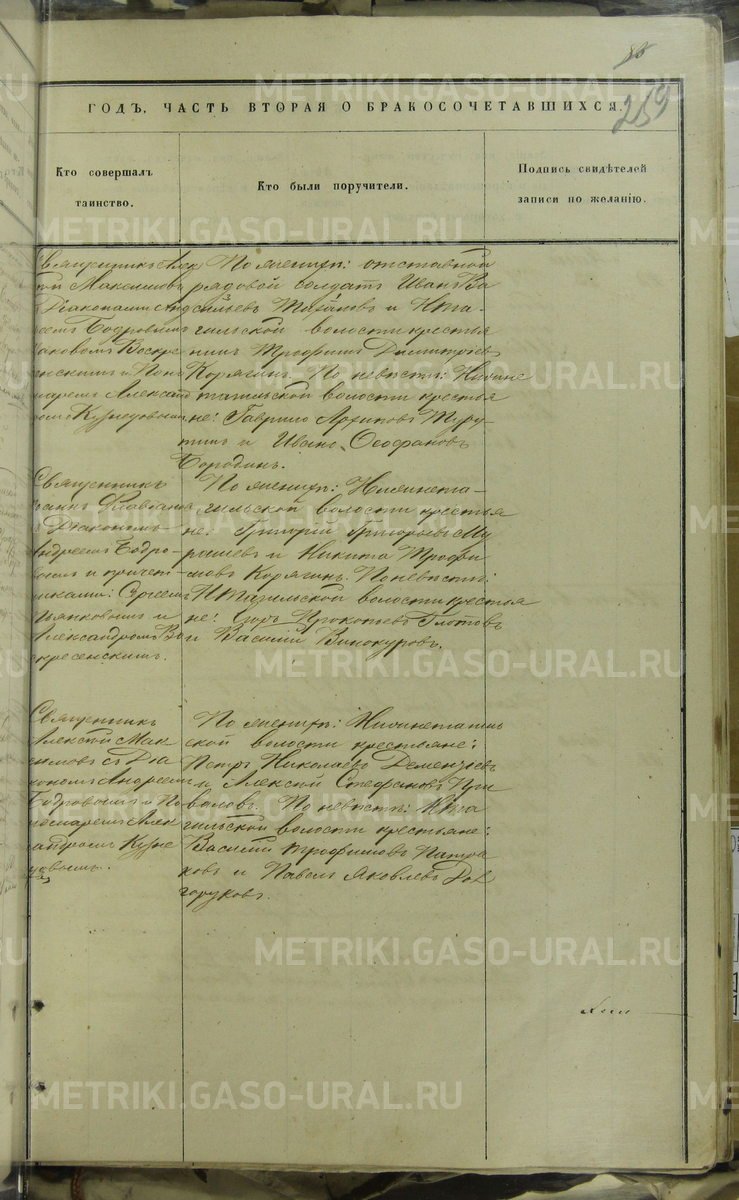 85
259
ГОДЪ, ЧАСТЬ ВТОРАЯ О БРАКОСОЧЕТАВШИХСЯ.
Кто совершалъ
таинство.
Кто были поручители.
Подпись свидѣтелей
записи по желанію.
Священникъ Алек
сѣй Максимовъ
Діакономъ Анд
реемъ Бодровымъ
Воскре
сенскимъ и Поно
маремъ Алексан
дромъ Кузнецовымъ
По женихѣ: отставной
рядовой солдатъ Иванъ Ва
сильевъ и Н. Та-
гильской волости крестья
нинъ Трофимъ Димитріевъ
Корягинъ. По невѣстѣ: Нижне
тагильской волости крестья
не: Гаврило Архиповъ
и Иванъ Ѳеофановъ
Бородинъ.
Священникъ
Іоаннъ Флавіановъ
съ Діакономъ
Андреемъ Бодро-
вымъ и причет-
никами: Сергіемъ
и
Александромъ Во
скресенскимъ.
По женихѣ: Нижнета-
гильской волости крестья
не: Григорій Григорьевъ Му
рашевъ и Никита Трофи
мовъ Корягинъ. По невѣстѣ:
Н Тагильской волости крестья
не: Прокопьевъ Глотовъ
и Василій Винокуровъ.
Священникъ
Алексѣй Мак
симовъ съ Діа
кономъ Андреемъ
Бодровымъ и По
номаремъ Алек
сандромъ Кузне
цовымъ.
По женихѣ: Нижнетагиль
ской волости крестьяне:
Петръ Николаевъ Дементьевъ
и Алексѣй Стефановъ При
валовъ. По невѣстѣ: Н Та
гильской волости крестьяне:
Василій Трофимовъ Патра
ковъ и Павелъ Яковлевъ Дол
горуковъ.
METRIKI.GASO-URAL.RU